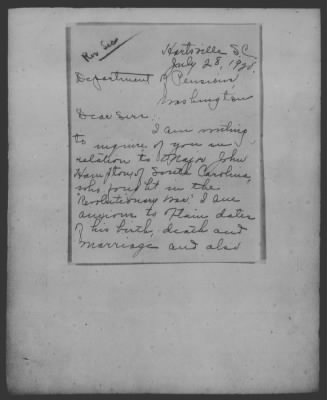 Rev Sec
Hartsville SC
July 28, 1928.
Department of Pensions,
Washington
Dear Sirs:
I am writing
to inquire of you in
relation to Major John
Hampton of South Carolina,
who fought in the
Revolutionary War. I am
anxious to obtain dates
of his birth, death and
marriage and also